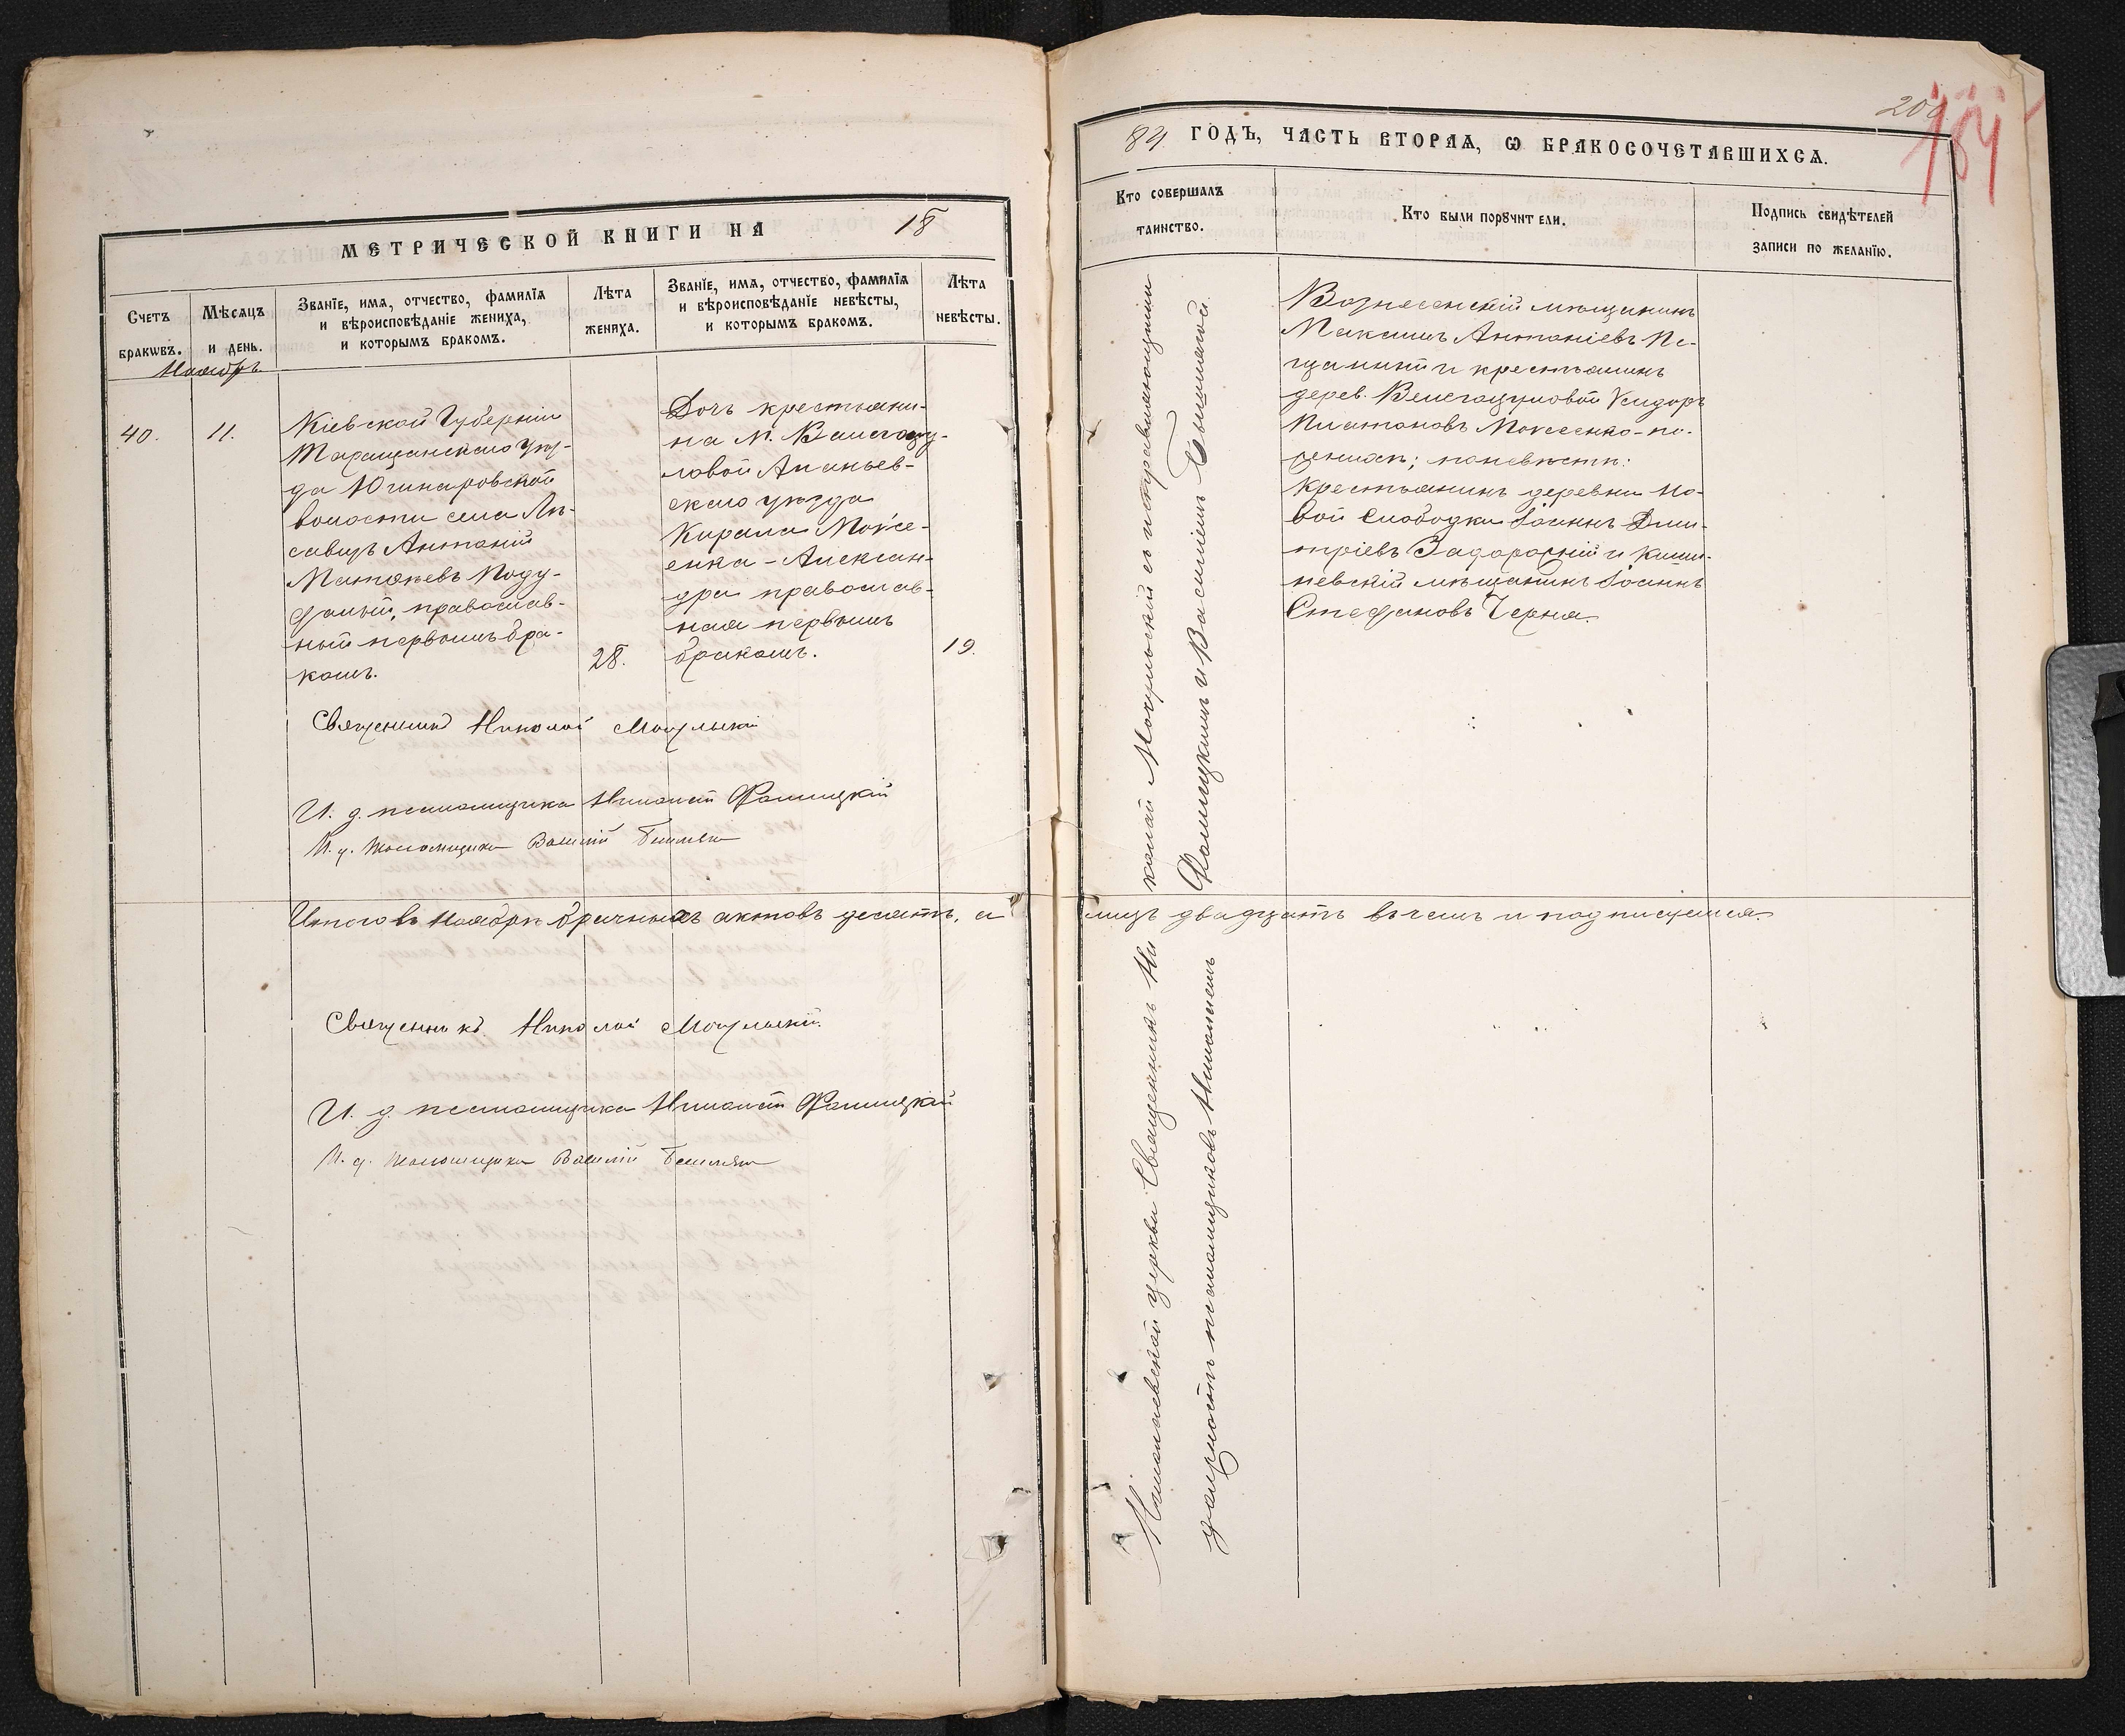 МЕТРИЧЕСКОЙ КНИГИ НА 18
Счетъ браковъ.
Мѣсяцъ и день.
Званїе, имя, отчество, фамилїя
и вѣроисповѣданїе жениха,
и которымъ бракомъ.
Лѣта
жениха.
Званїе, имя, отчество, фамилїя
и вѣроисповѣданїе невѣсты,
и которымъ бракомъ.
Лѣта
невѣсты.
Ноябрь
40.
11.
Кіевской Губерніи
Таращанскаго уѣз-
да
волости села Лѣ-
савцъ Антоній
Матѳѣевъ Поду-
фалый, православ-
ный первымъ бра-
комъ.
28.
Дочь крестьяни-
на
ловой Ананьев-
скаго уѣзда
Кирила Моисе-
енка - Алексан-
дра православ-
ная первымъ
бракомъ.
19.
Священникъ Николай Могульскій
И. д. псаломщика Фомицкій
И. д. Псаломщика Василій
Итого въ Ноябрѣ брачныхъ актовъ десять, а
Священникъ Николай Могульскій.
И. д. псаломщика Фомицкій
И. д. Псаломщика Василій
200
184
84 ГОДЪ, ЧАСТЬ ВТОРАЯ, Ѡ БРАКОСОЧЕТАВШИХСЯ.
Кто совершалъ
таинство.
Кто были порꙋчители.
Подпись свидѣтелей
записи по желанїю.
церкви Священникъ Ни
колай Могульскій съ исправляющими
должность псаломщиковъ
Фомицкимъ и Василіемъ
Вознесенскій мѣщанинъ
Максимъ Антоніевъ Пе-
щаный и крестьянинъ
дерев. Исидоръ
Платоновъ Моисеенко - по
женихѣ; по невѣстѣ:
крестьянинъ деревни Но-
вой Слободки Іоаннъ Дми-
тріевъ Задорожній и Киши-
невскій мѣщанинъ Іоаннъ
Стефановъ Черна.
лицъ двадцать въ чемъ и подписуемся.